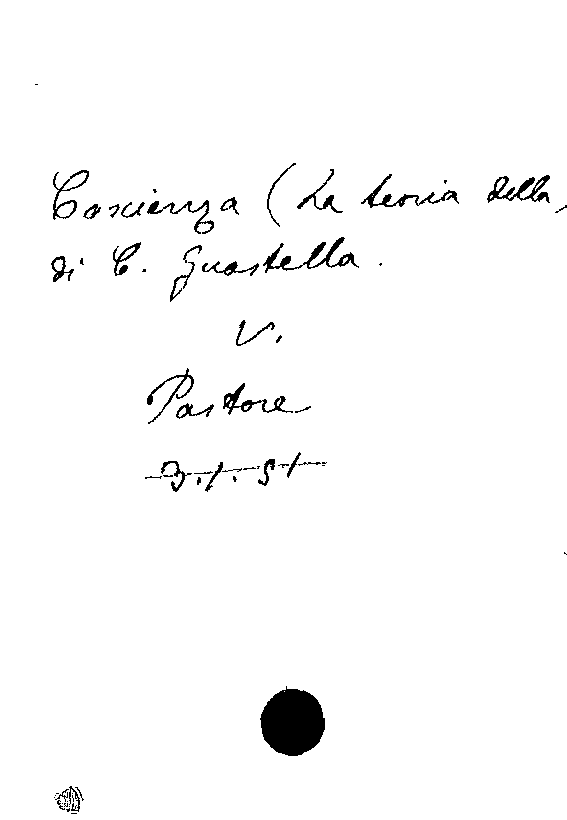 Coscienza (La teoria della,
di C. Guastella.
V.
Pastore
3.1.51